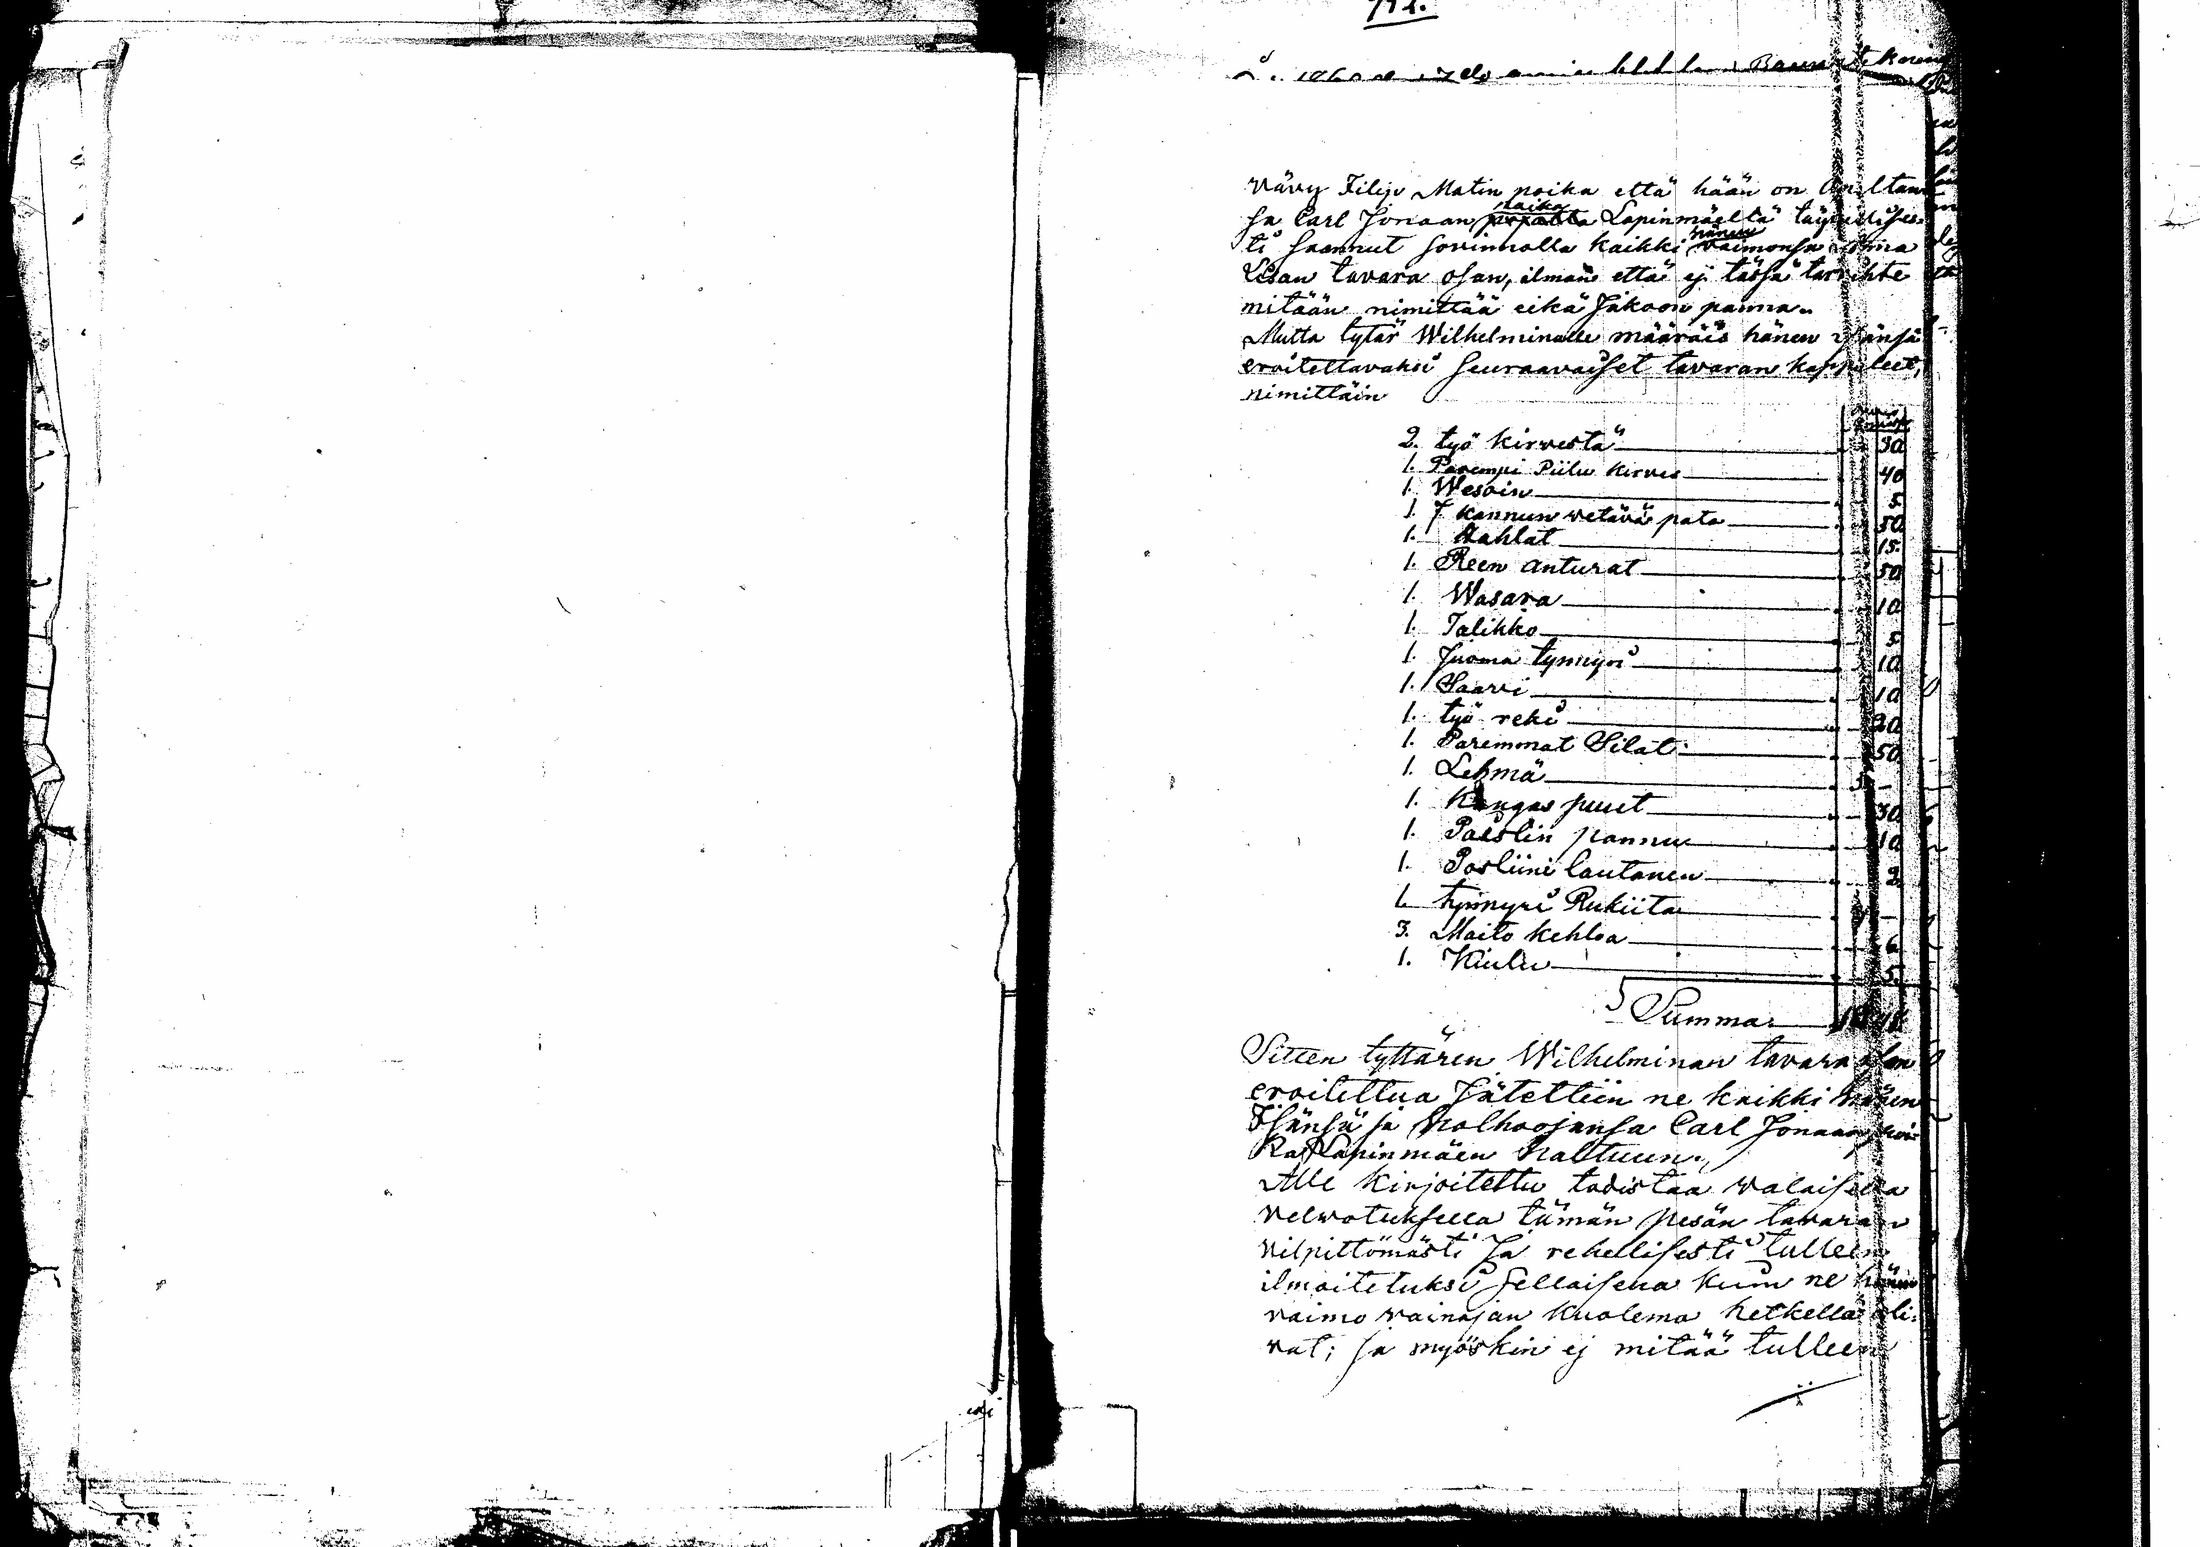 Vävy Filip Matin poika että hään on
sa Carl Jonaan poika Lapinmäeltä täydellises-
ti saannut sovinnolla kaikki hänen vaimonsa Anna
Lisan tavara osan, ilman että ej tässä tarvihte
mitään nimittää eikä jakoon panna.
Mutta tytär Wilhelminalle määräis hänen isänsä
eroitettavaksi seuraavaiset tavaran kappaleet,
nimittäin
2. työ kirvestä 30
1. Parempi Piilu kirves 40
1. Wesoin 5
1. 7 kannun vetävä pata 50
1. Hahlat 15
1. Reen anturat 50
1. Wasara 10
1. Talikko 5
1. Juoma tynnyri 10
1. Saavi 10
1. työ reki 20
1. Paremmat Silat 50
1. Lehmä 5 -
1. Kangas puut 30
1. pannu 10
1. Posliini lautanen 2
1. tynnyri Rukiita -
3. Maito kehloa 6
1. Kiulu 5
Summa
Sitten tyttären Wilhelminan tavara osan
eroitettua Jätettiin ne kaikki hänen
Isänsä ja holhoojansa Carl Jonaan poi-
ka Lapinmäen haltuun.
Alle kirjoitettu todistaa valaisella
velvotuksella tämän pesän tavaran
vilpittömästi Ja rehellisesti tulleen
ilmoitetuksi sellaisena kuin ne hänen
vaimo vainajan kuolema hetkellä oli-
vat; ja myöskin ej mitää tulleen